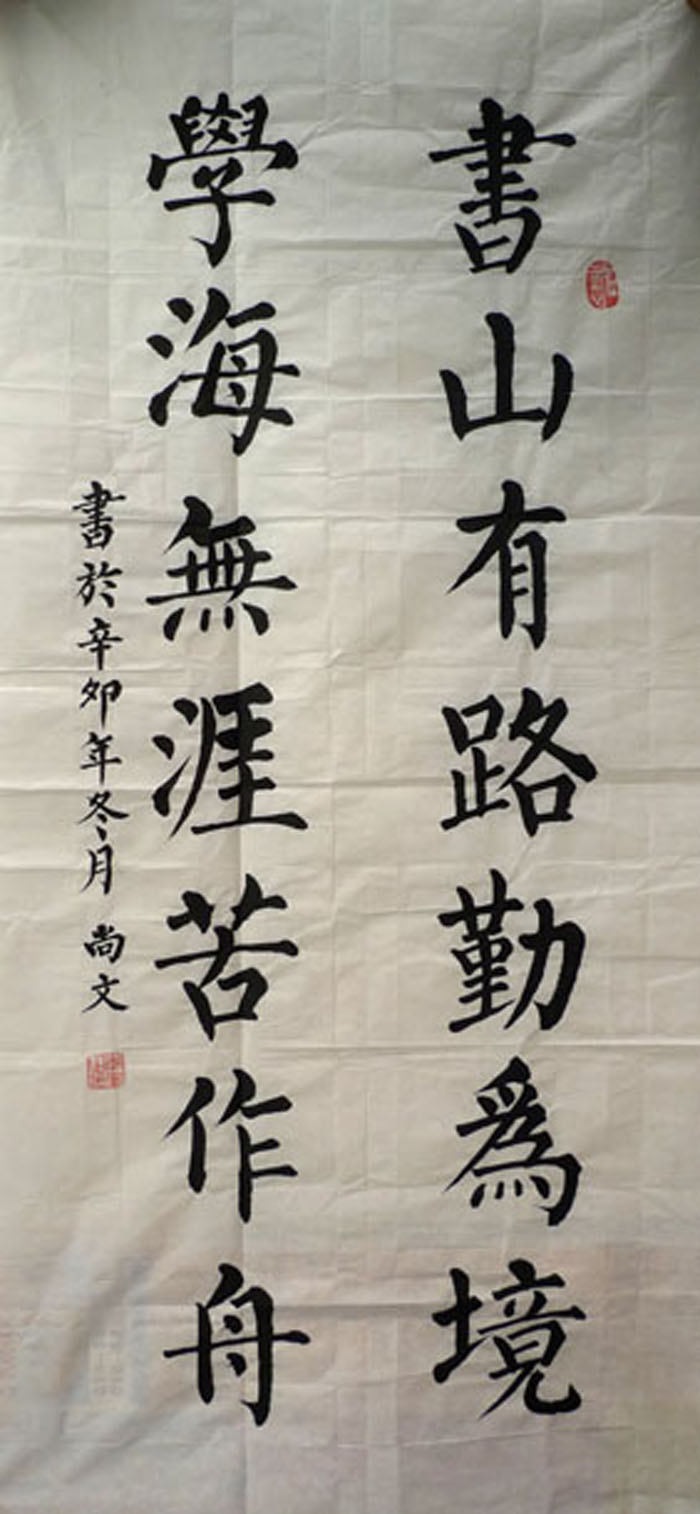 書山有路勤為境
學海無涯苦作舟
書於辛卯年冬月 尚文